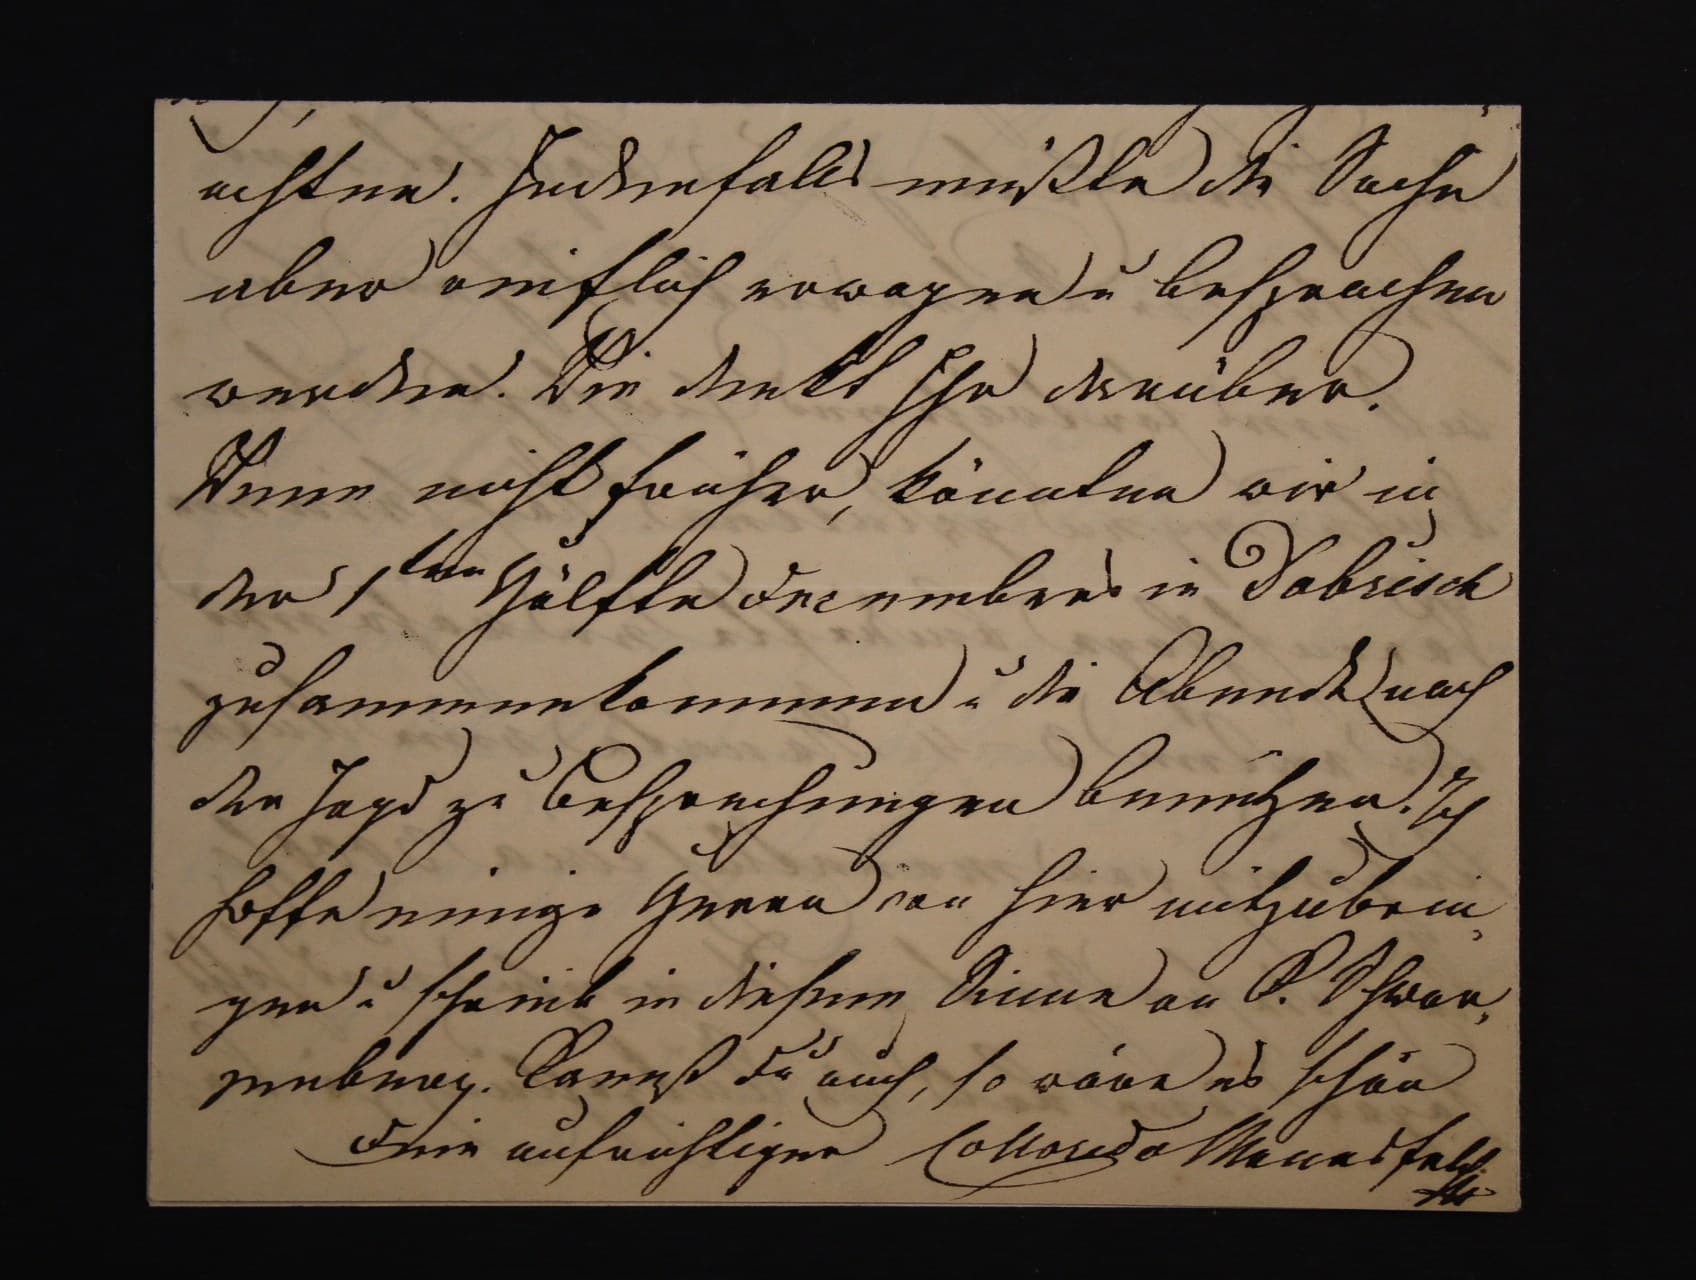 achten. Jedenfalls müßte die Sache
aber reiflich erwogen u besprochen
werden. Wie denkt Ihr darüber.
Wenn nicht früher, könnten wir in
der 1ten Hälfte Decembers in Dobrisch
zusammenkommen u die Abende nach
der Jagd zu Besprechungen benützen. Ich
hoffe einige Herren von hier mitzubrin,
gen u schreib in diesem Sinne an E. Schwar,
zenberg. Kannst Du auch, so wäre es schön
Dein aufrichtiger Colloredo Mannsfeld